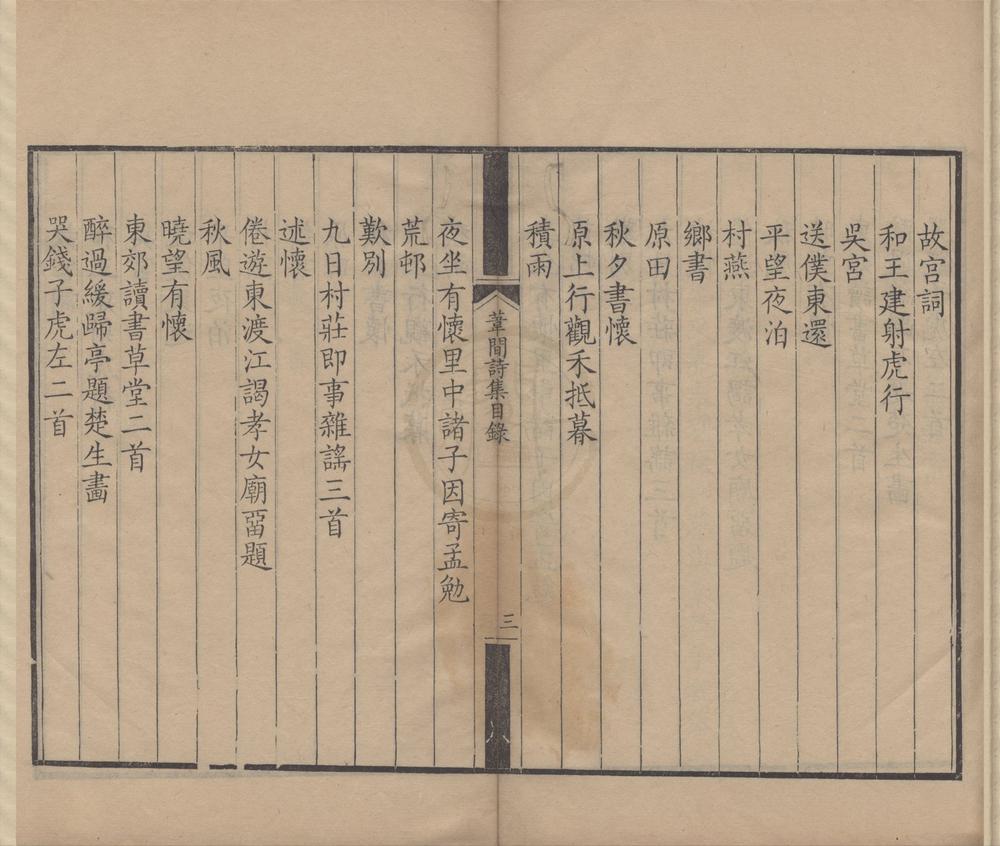 故宫詞
和王建射虎行
吳宮
送僕東還
平望夜泊
村燕
鄉書
原田
秋夕書懷
原上行觀禾抵暮
積雨
葦間詩集目錄
三
夜坐有懷里中諸子因寄孟勉
荒邨
歎別
九日村莊即事雜謠三首
述懷
倦遊東渡江謁孝女廟畱題
秋風
曉望有懷
東郊讀書草堂二首
醉過緩歸亭題楚生畫
哭錢子虎左二首